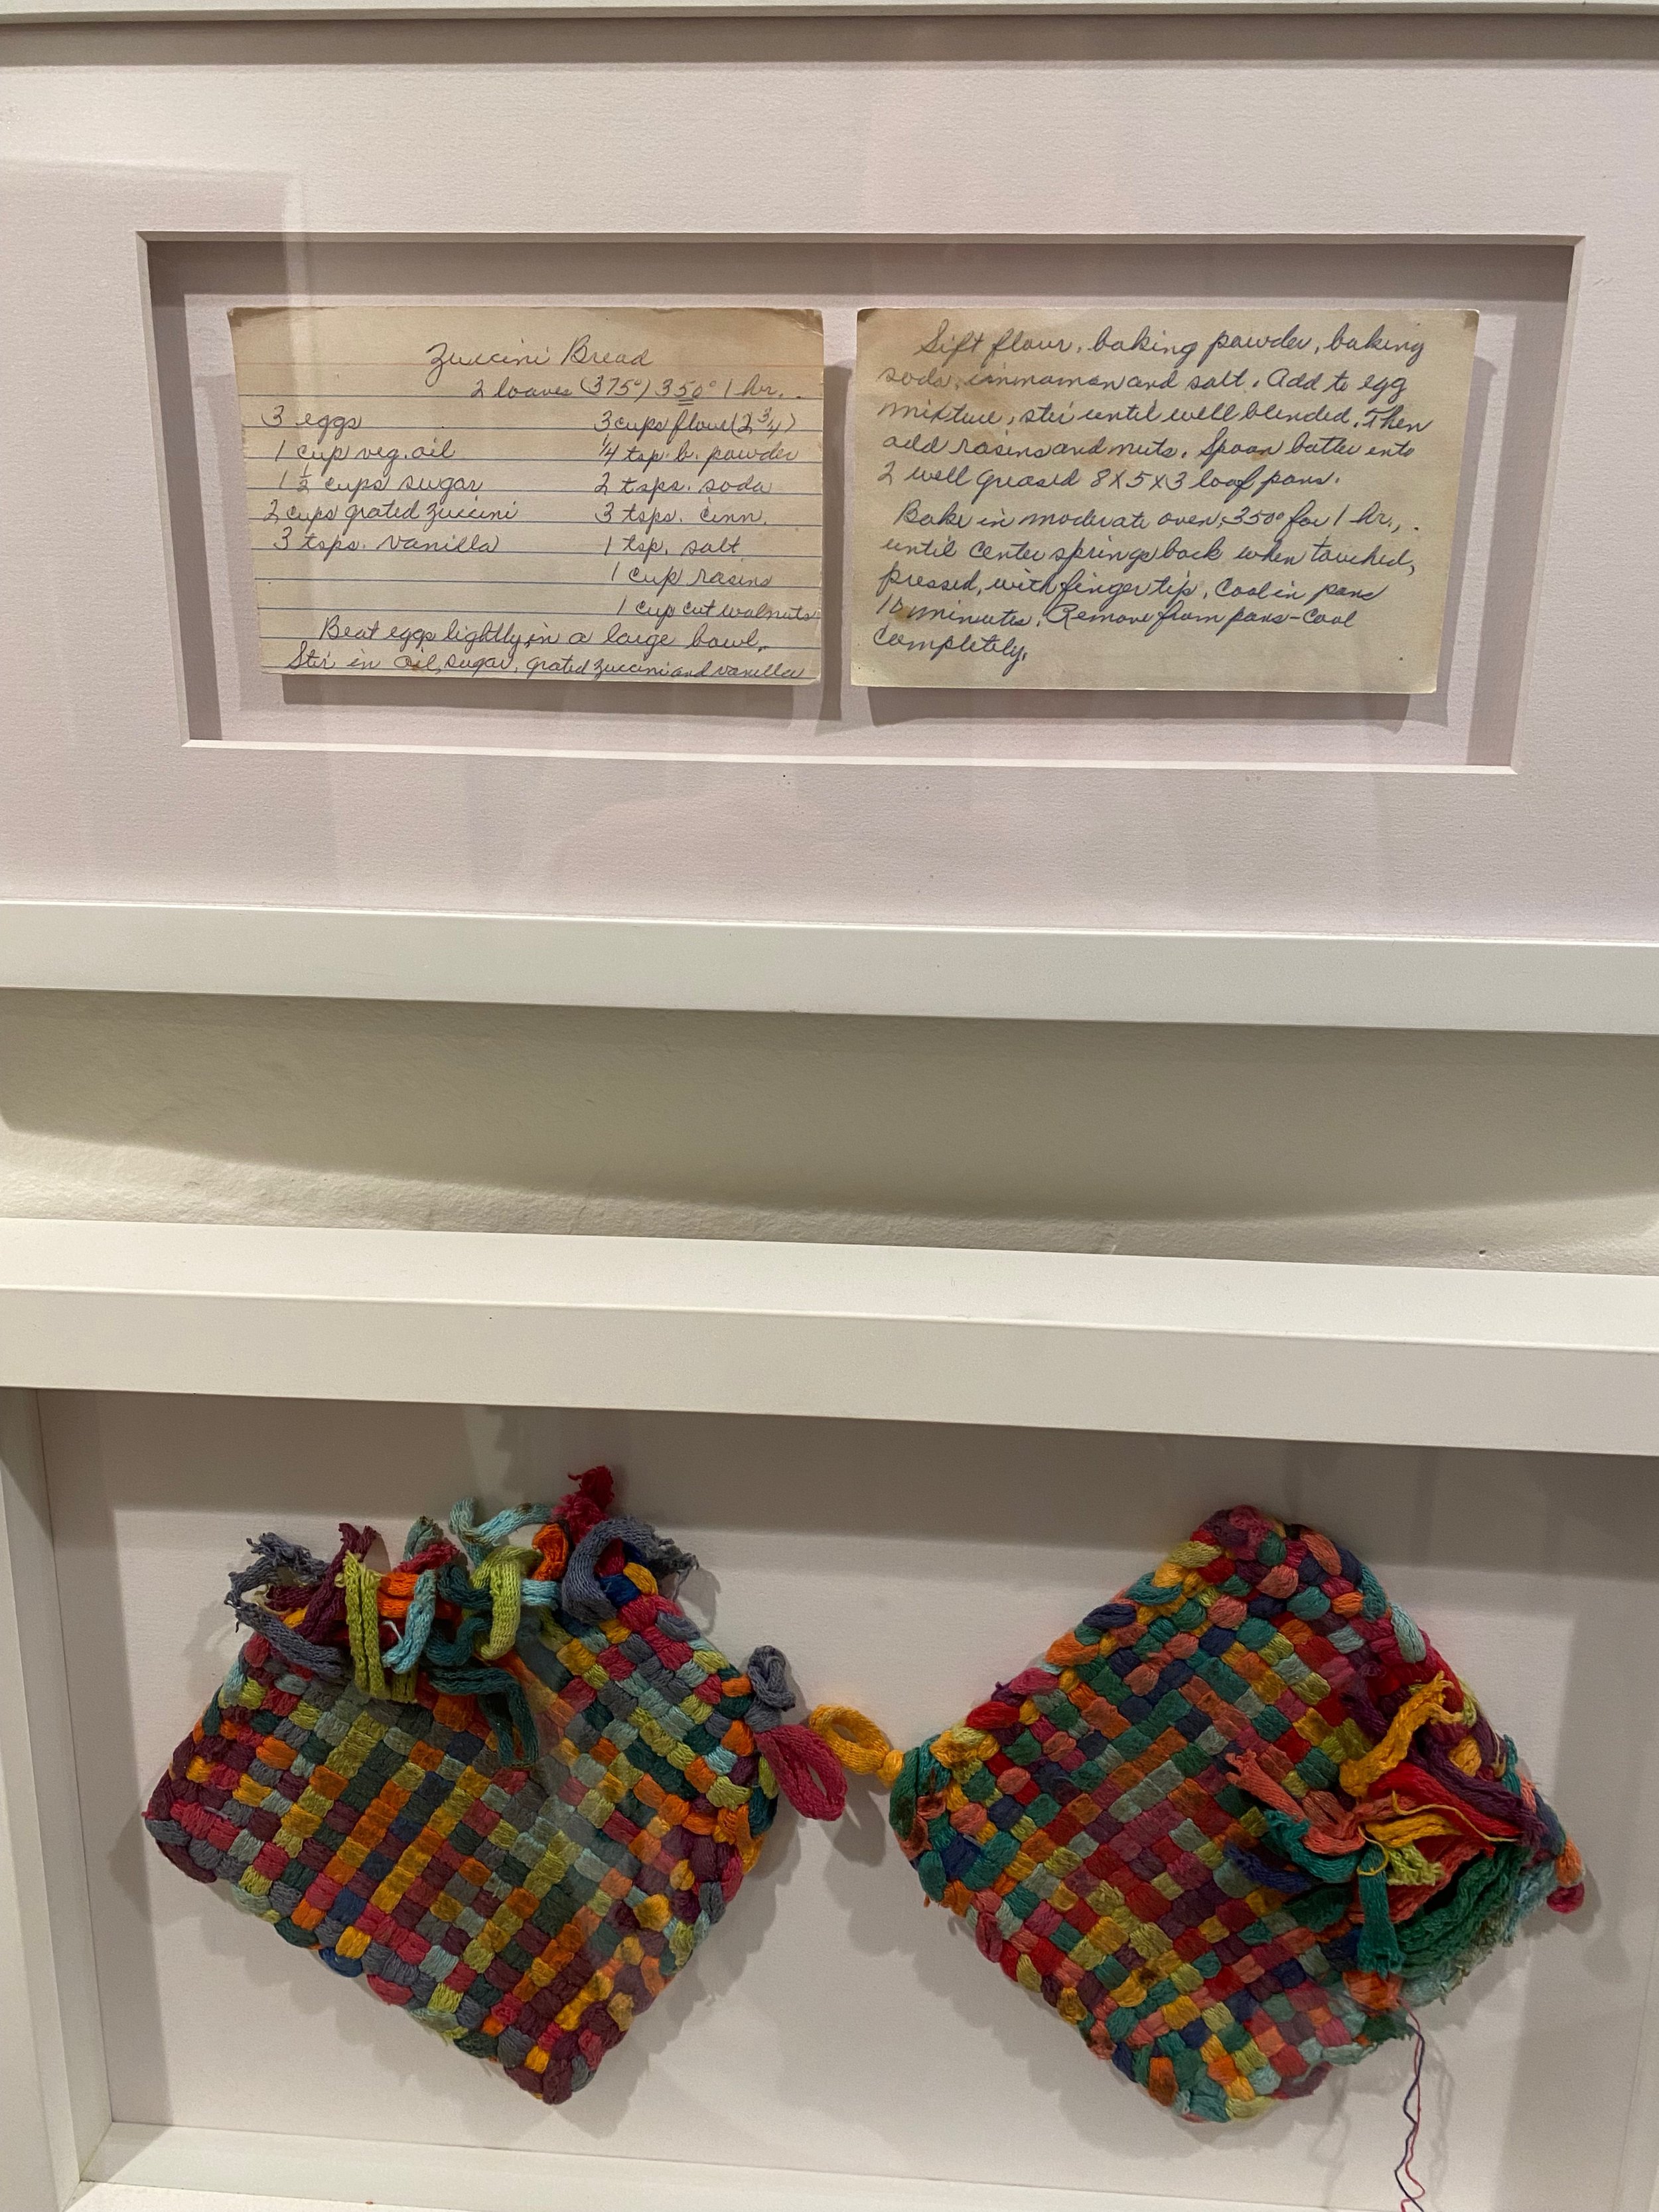 Zuccini Bread
2 loaves (375°) 350° 1 hr.
3 eggs
1 cup veg. oil
1 1/2 cups sugar
2 cups grated zuccini
3 tsps. vanilla
3 cups flour (2 3/4)
1/4 tsp. b. powder
2 tsps. soda
3 tsps. cinn.
1 tsp. salt
1 cup rasins
1 cup cut walnuts
Beat eggs lightly, in a large bowl.
Stir in oil, sugar, grated zuccini and vanilla
Sift flour, baking powder, baking
soda, cinnamon and salt. Add to egg
mixture, stir until well blended. Then
add rasins and nuts. Spoon batter into
2 well greased 8x5x3 loaf pans.
Bake in moderate oven, 350° for 1 hr.,
until center springs back when touched,
pressed, with finger tip. Cool in pans
10 minutes. Remove from pans-cool
completely.